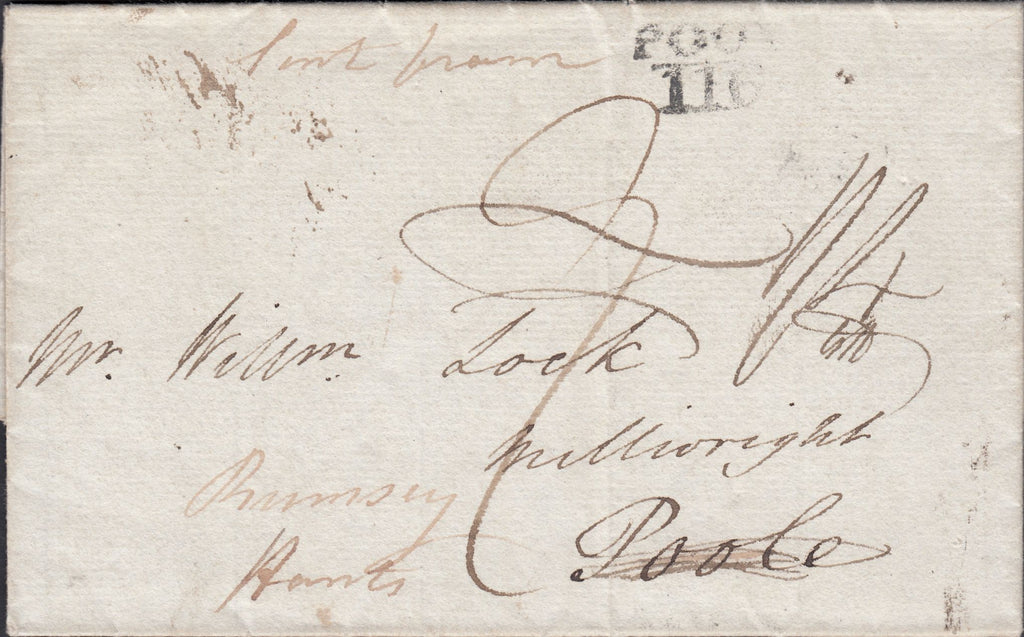 Sent from
POO
116
Mr. Willm. Lock
Millwright
Poole
Rumsey
Hants